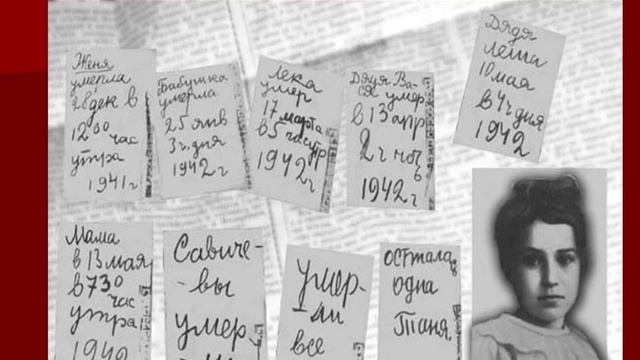 Женя
умерла
28 дек в
12 00 час
утра
1941 г
Бабушка
умерла
25 янв
3 ч. дня
1942 г
Лека
умер
17 марта
в 5 час утр
1942 г
Дядя Ва-
ся умер
в 13 апр
2 ч ноч
1942 г
Дядя
Леша
10 мая
в 4 ч дня
1942
Мама
в 13 мая
в 7 30
час
утра
1942
Савиче-
-вы
умер-
умер-
-ли
все
осталась
одна
Таня